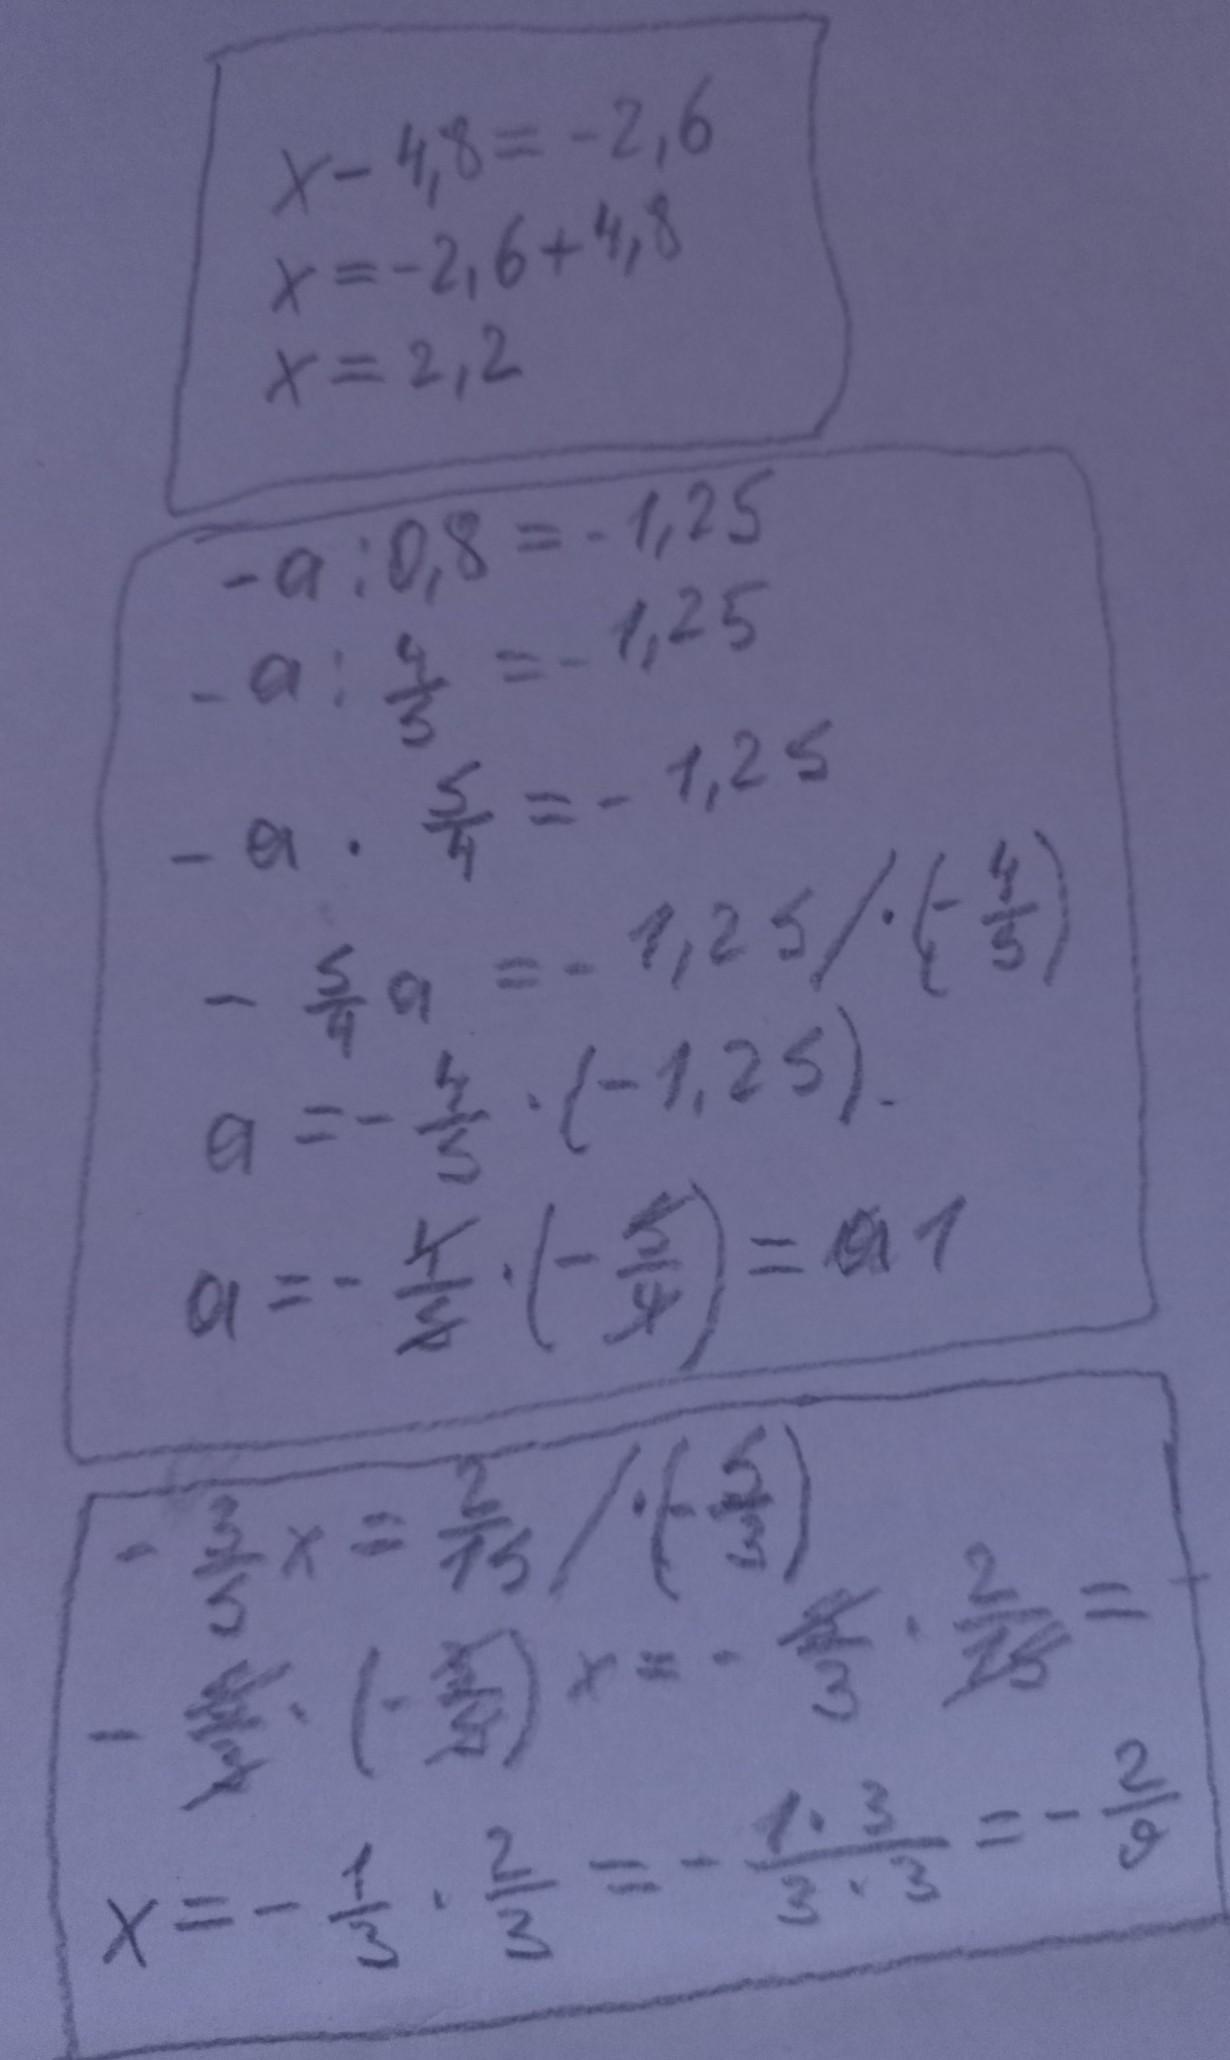 x - 4,8 = -2,6
x = -2,6 + 4,8
x = 2,2
-a : 0,8 = -1,25
-a : 4/5 = -1,25
-a · 5/4 = -1,25
- 5/4 a = -1,25 / · (- 4/5)
a = - 4/5 · (-1,25).
a = - 4/5 · (- 5/4) = 1
- 3/5 x = 2/15 / · (- 5/3)
- 5/3 · (- 3/5) x = - 5/3 · 2/15 =
x = - 1/3 · 2/3 = - 1·3/3·3 = - 2/9